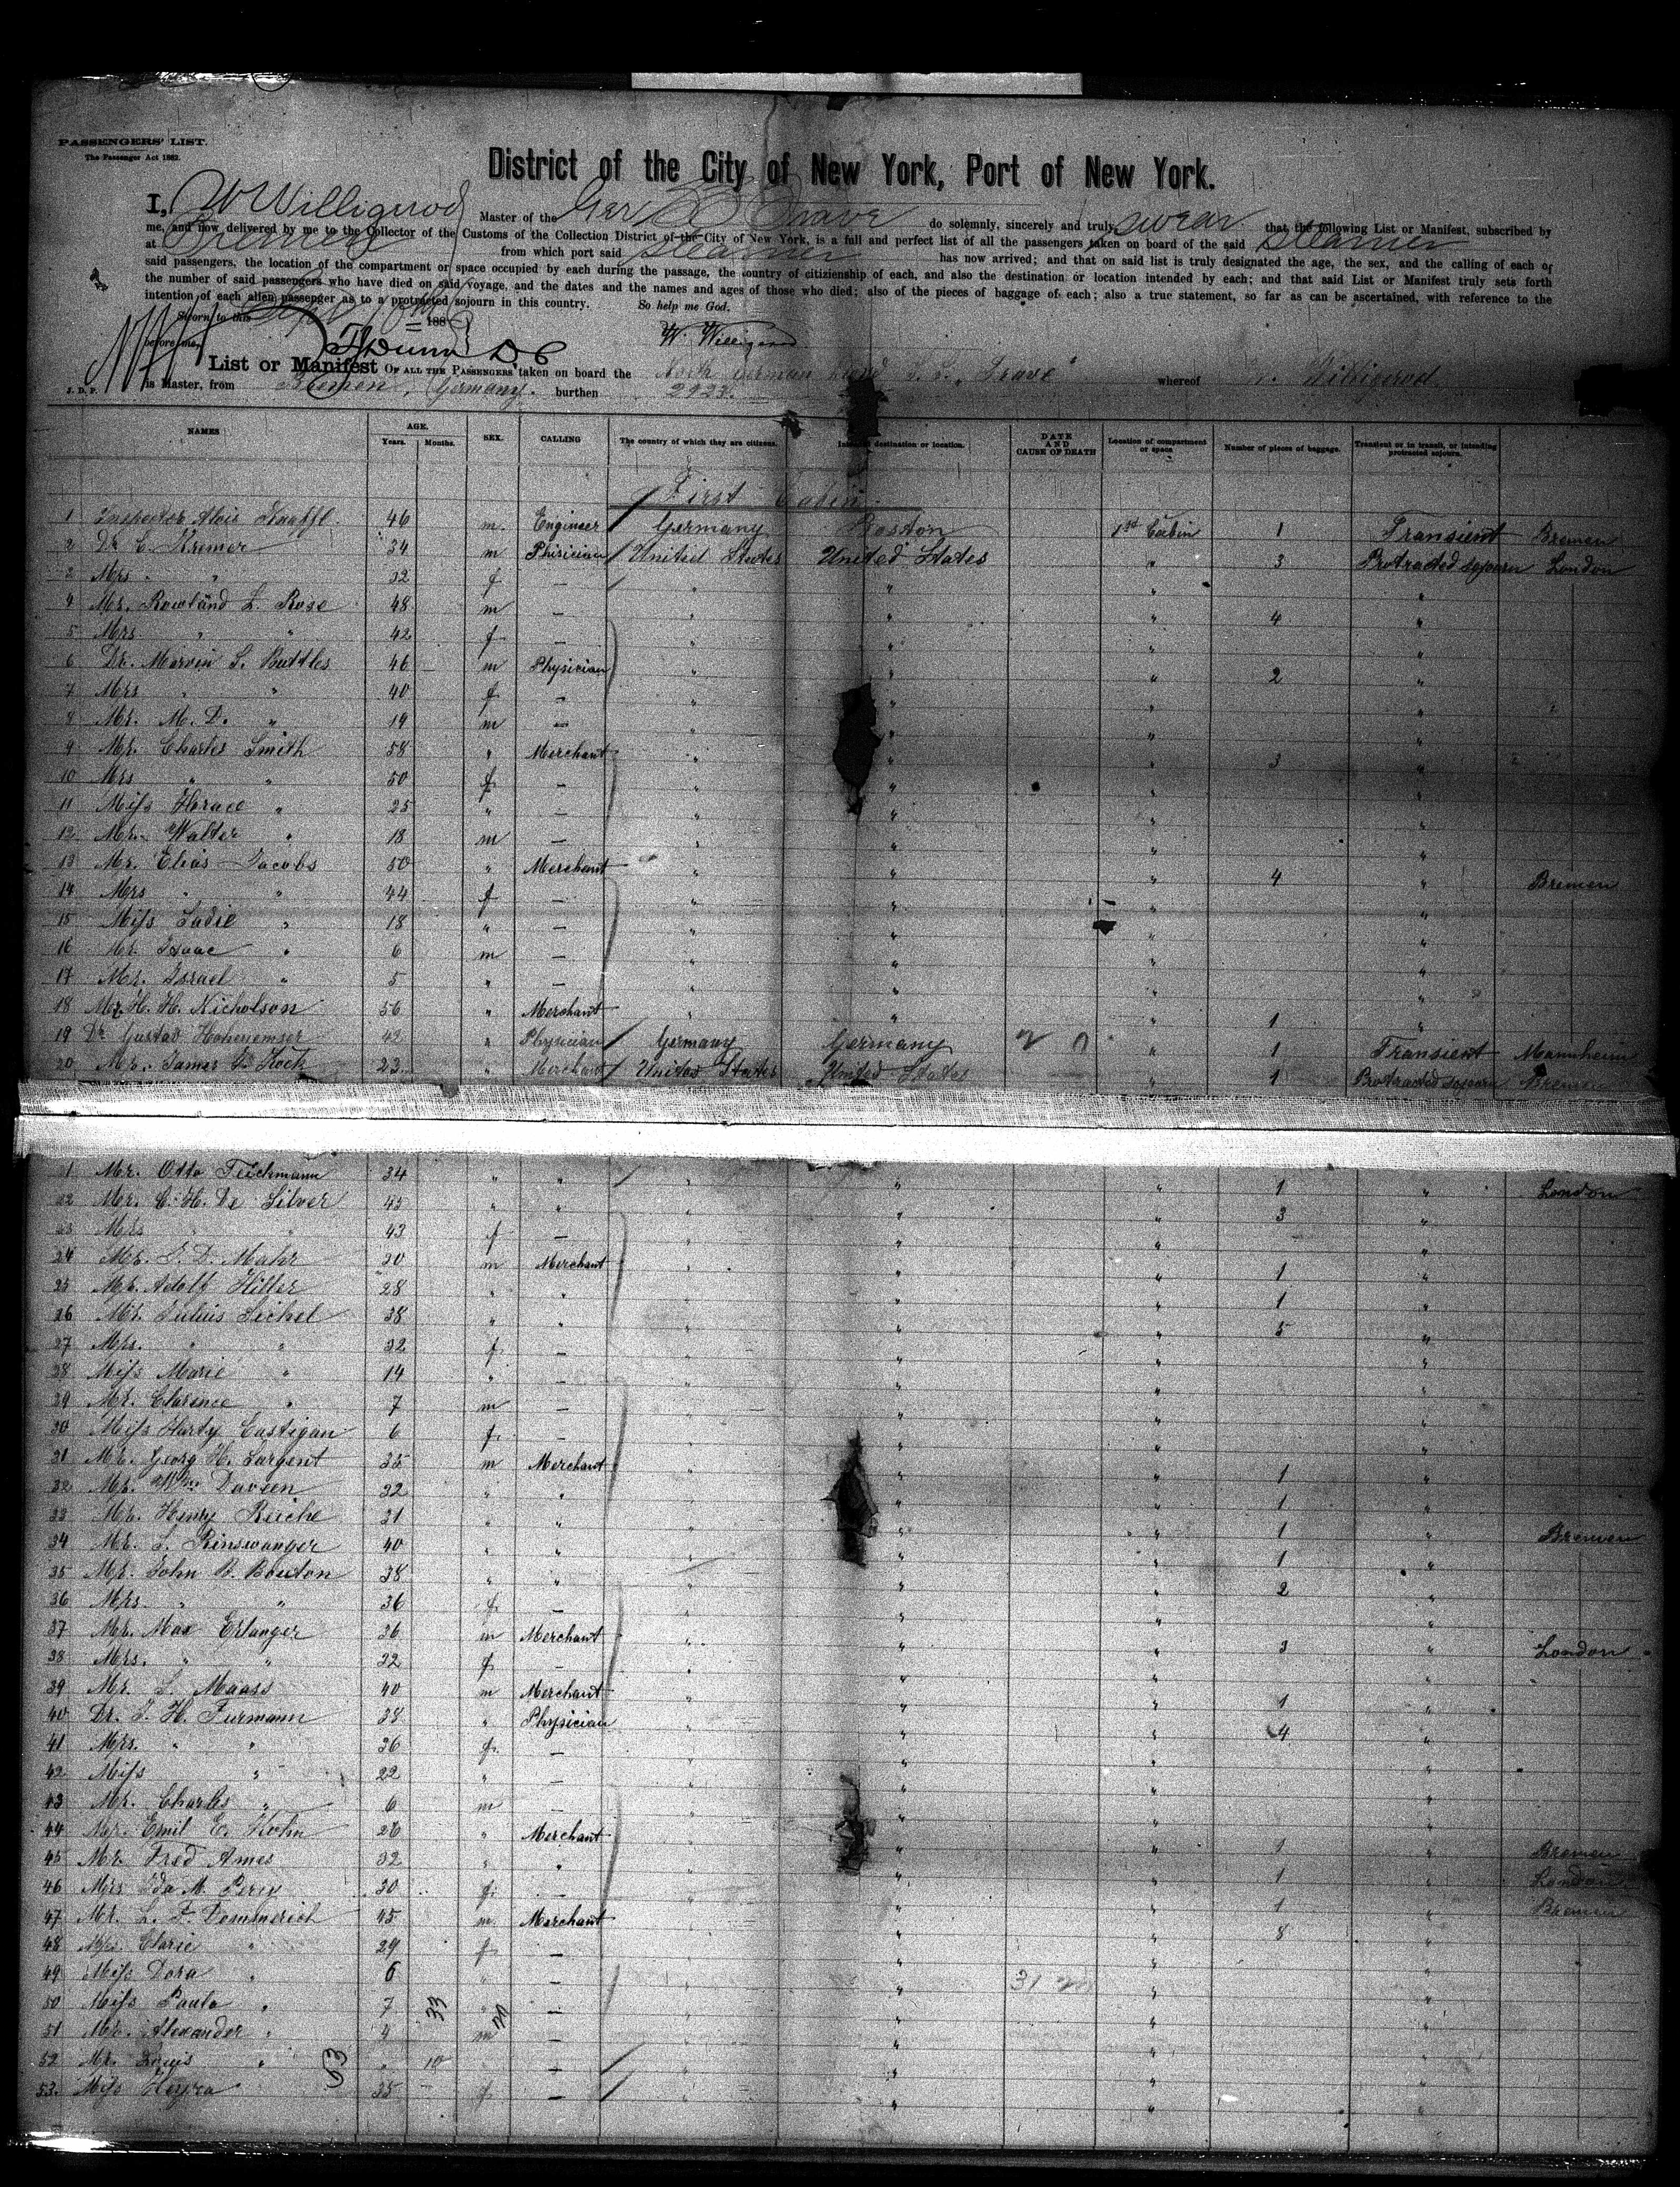 PASSENGERS' LIST.
The Passenger Act 1882.
District of the City of New York, Port of New York.
I, W Willigerod Master of the Ger SS Trave do solemnly, sincerely and truly swear that the following List or Manifest, subscribed by
me, and now delivered by me to the Collector of the Customs of the Collection District of the City of New York, is a full and perfect list of all the passengers taken on board of the said Steamer
at Bremen from which port said Steamer has now arrived; and that on said list is truly designated the age, the sex, and the calling of each of
said passengers, the location of the compartment or space occupied by each during the passage, the country of citizienship of each, and also the destination or location intended by each; and that said List or Manifest truly sets forth
the number of said passengers who have died on said voyage, and the dates and the names and ages of those who died; also of the pieces of baggage of each; also a true statement, so far as can be ascertained, with reference to the
intention of each alien passenger as to a protracted sojourn in this country. So help me God.
Sworn to this 188
before me, W. Willigerod
List or Manifest OF ALL THE PASSENGERS taken on board the North German Lloyd S. S. "Trave" whereof W. Willigerod
J. D. P. is Master, from Bremen, Germany. burthen 2923.
NAMES AGE. Years. Months. SEX. CALLING The country of which they are citizens. Intended destination or location. DATE AND CAUSE OF DEATH Location of compartment or space Number of pieces of baggage. Transient or in transit, or intending protracted sojourn.
First Cabin
1 Inspector Alois 46 m. Engineer Germany Boston 1st Cabin 1 Transient Bremen
2 Dr. C. Kremer 34 m Phisician United States United States " 3 Protracted sojourn London
3 Mrs " " 32 f " " " "
4 Mr. Rowland L. Rose 48 m — " " " 4 "
5 Mrs " " 42 f — " " " "
6 Dr. Marvin S. Buttles 46 m Physician " " " 2 "
7 Mrs " " 40 f — " " " "
8 Mr. M. D. " 19 m — " " " "
9 Mr. Charles Smith 58 " Merchant " " " 3 "
10 Mrs " " 50 f — " " " "
11 Miss Horace " 25 " — " " " "
12 Mr. Walter " 18 m — " " " "
13 Mr. Elias Jacobs 50 " Merchant " " " 4 " Bremen
14 Mrs " " 44 f — " " " "
15 Miss Sadie " 18 " — " " " "
16 Mr. Isaac " 6 m — " " " "
17 Mr. Israel " 5 " — " " " "
18 Mr. H. H. Nicholson 56 " Merchant " " " 1 "
19 Dr. Gustav Hohenemser 42 " Physician Germany Germany " 1 Transient Mannheim
20 Mr. James Koch 23 " Merchant United States United States " 1 Protracted sojourn Bremen
1 Mr. Otto Teichmann 34 " " " " " 1 " London
22 Mr. C. H. De Silver 45 " " " " " 3 "
23 Mrs " 43 f — " " " "
24 Mr. S. D. Mahr 30 m Merchant " " " 1 "
25 Mr. Adolf Hiller 28 " " " " " 1 "
26 Mr. Julius Sichel 38 " " " " " 5 "
27 Mrs. " " 32 f. — " " " "
28 Miss Marie " 14 " — " " " "
29 Mr. Clarence " 7 m — " " " "
30 Miss Costigan 6 f. — " " " "
31 Mr. Georg H. Sargent 35 m Merchant " " " 1 "
32 Mr. Wm. 32 " " " " " 1 "
33 Mr. Henry Reiche 31 " " " " " 1 " Bremen
34 Mr. S. Binswanger 40 " " " " " 1 "
35 Mr. John B. Bouton 38 " " " " " 2 "
36 Mrs. " " 36 f. — " " " "
37 Mr. Max Erlanger 36 m Merchant " " " 3 " London
38 Mrs. " " 22 f. — " " " "
39 Mr. L. Maass 40 m Merchant " " " 1 "
40 Dr. S. H. Furmann 38 " Physician " " " 4 "
41 Mrs. " " 36 f. — " " " "
42 Miss " 22 " — " " " "
43 Mr. Charles " 6 m — " " " "
44 Mr. Emil E. Kohn 26 " Merchant " " " 1 " Bremen
45 Mr. Fred Ames 32 " " " " " 1 " London
46 Mrs Ida M. Perry 30 f. — " " " 1 " Bremen
47 Mr. L. F. Dommerich 45 m. Merchant " " " 8 "
48 Mrs. Clarie " 29 f. — " " " "
49 Miss Dora " 6 " — " " 31 " "
50 Miss Paula " 7 33 " — " " " "
51 Mr. Alexander " 4 m — " " " "
52 Mr. Louis " " 10 — " " " "
53. Miss " 35 — f. — " " " "
53